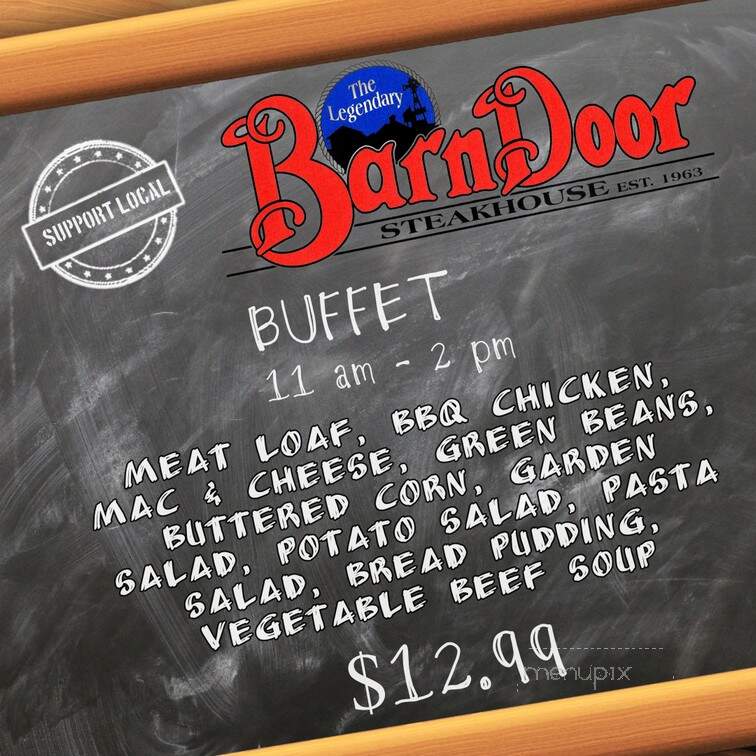 The
Legendary
Barn Door
STEAKHOUSE EST. 1963
SUPPORT LOCAL
BUFFET
11 am - 2 pm
MEAT LOAF, BBQ CHICKEN,
MAC & CHEESE, GREEN BEANS,
BUTTERED CORN, GARDEN
SALAD, POTATO SALAD, PASTA
SALAD, BREAD PUDDING,
VEGETABLE BEEF SOUP
$12.99
menupix